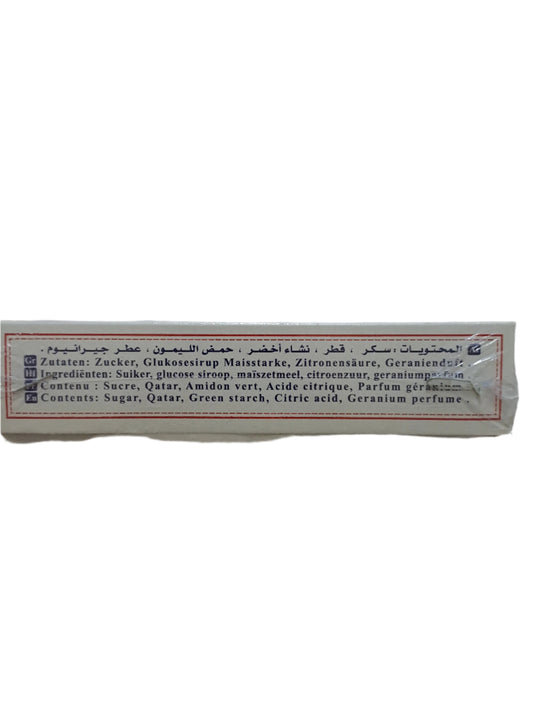 المحتويات : سكر ، قطر ، نشاء أخضر ، حمض الليمون ، عطر جيرانيوم .
Gr Zutaten: Zucker, Glukosesirup Maisstarke, Zitronensäure, Geranienduft
Ingrediënten: Suiker, glucose siroop, maïszetmeel, citroenzuur, geraniumparfum
Contenu : Sucre, Qatar, Amidon vert, Acide citrique, Parfum géranium .
En Contents: Sugar, Qatar, Green starch, Citric acid, Geranium perfume .